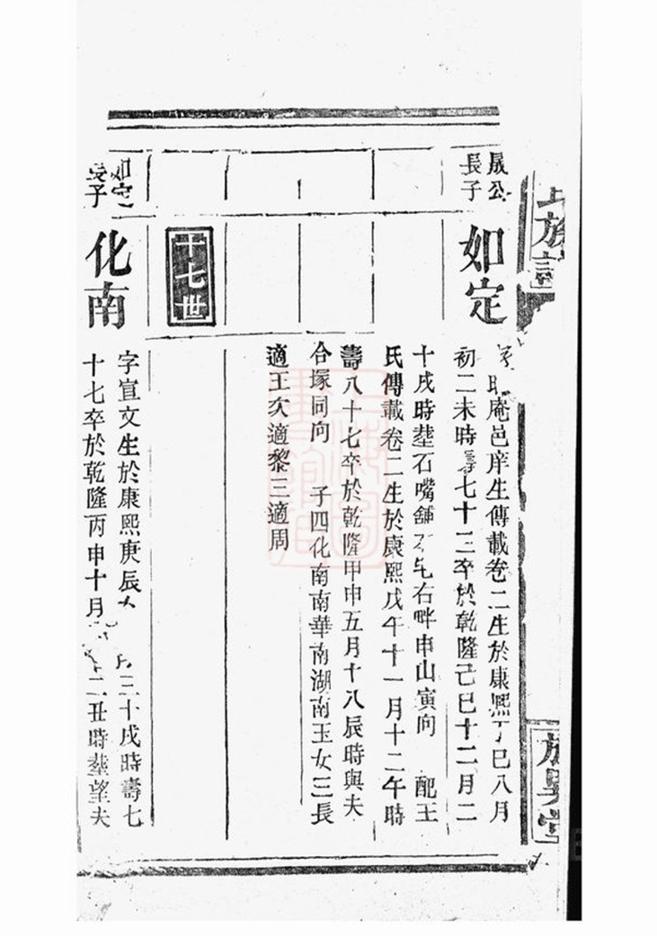 族
晟公
長子
如定
庵邑庠生傳載卷二生於康熙丁巳八月
初二未時壽七十三卒於乾隆己巳十二月二
十戌時塟石嘴舖 右畔申山寅向 配王
氏傳載卷二生於康熙戊午十一月十二午時
壽八十七卒於乾隆甲申五月十八辰時與夫
合塚同向 子四化南南華南湖南玉女三長
適王次適黎三適周
十七世
如定
長子
化南
字宣文生於康熙庚辰 月三十戌時壽七
十七卒於乾隆丙申十月 二丑時塟望夫